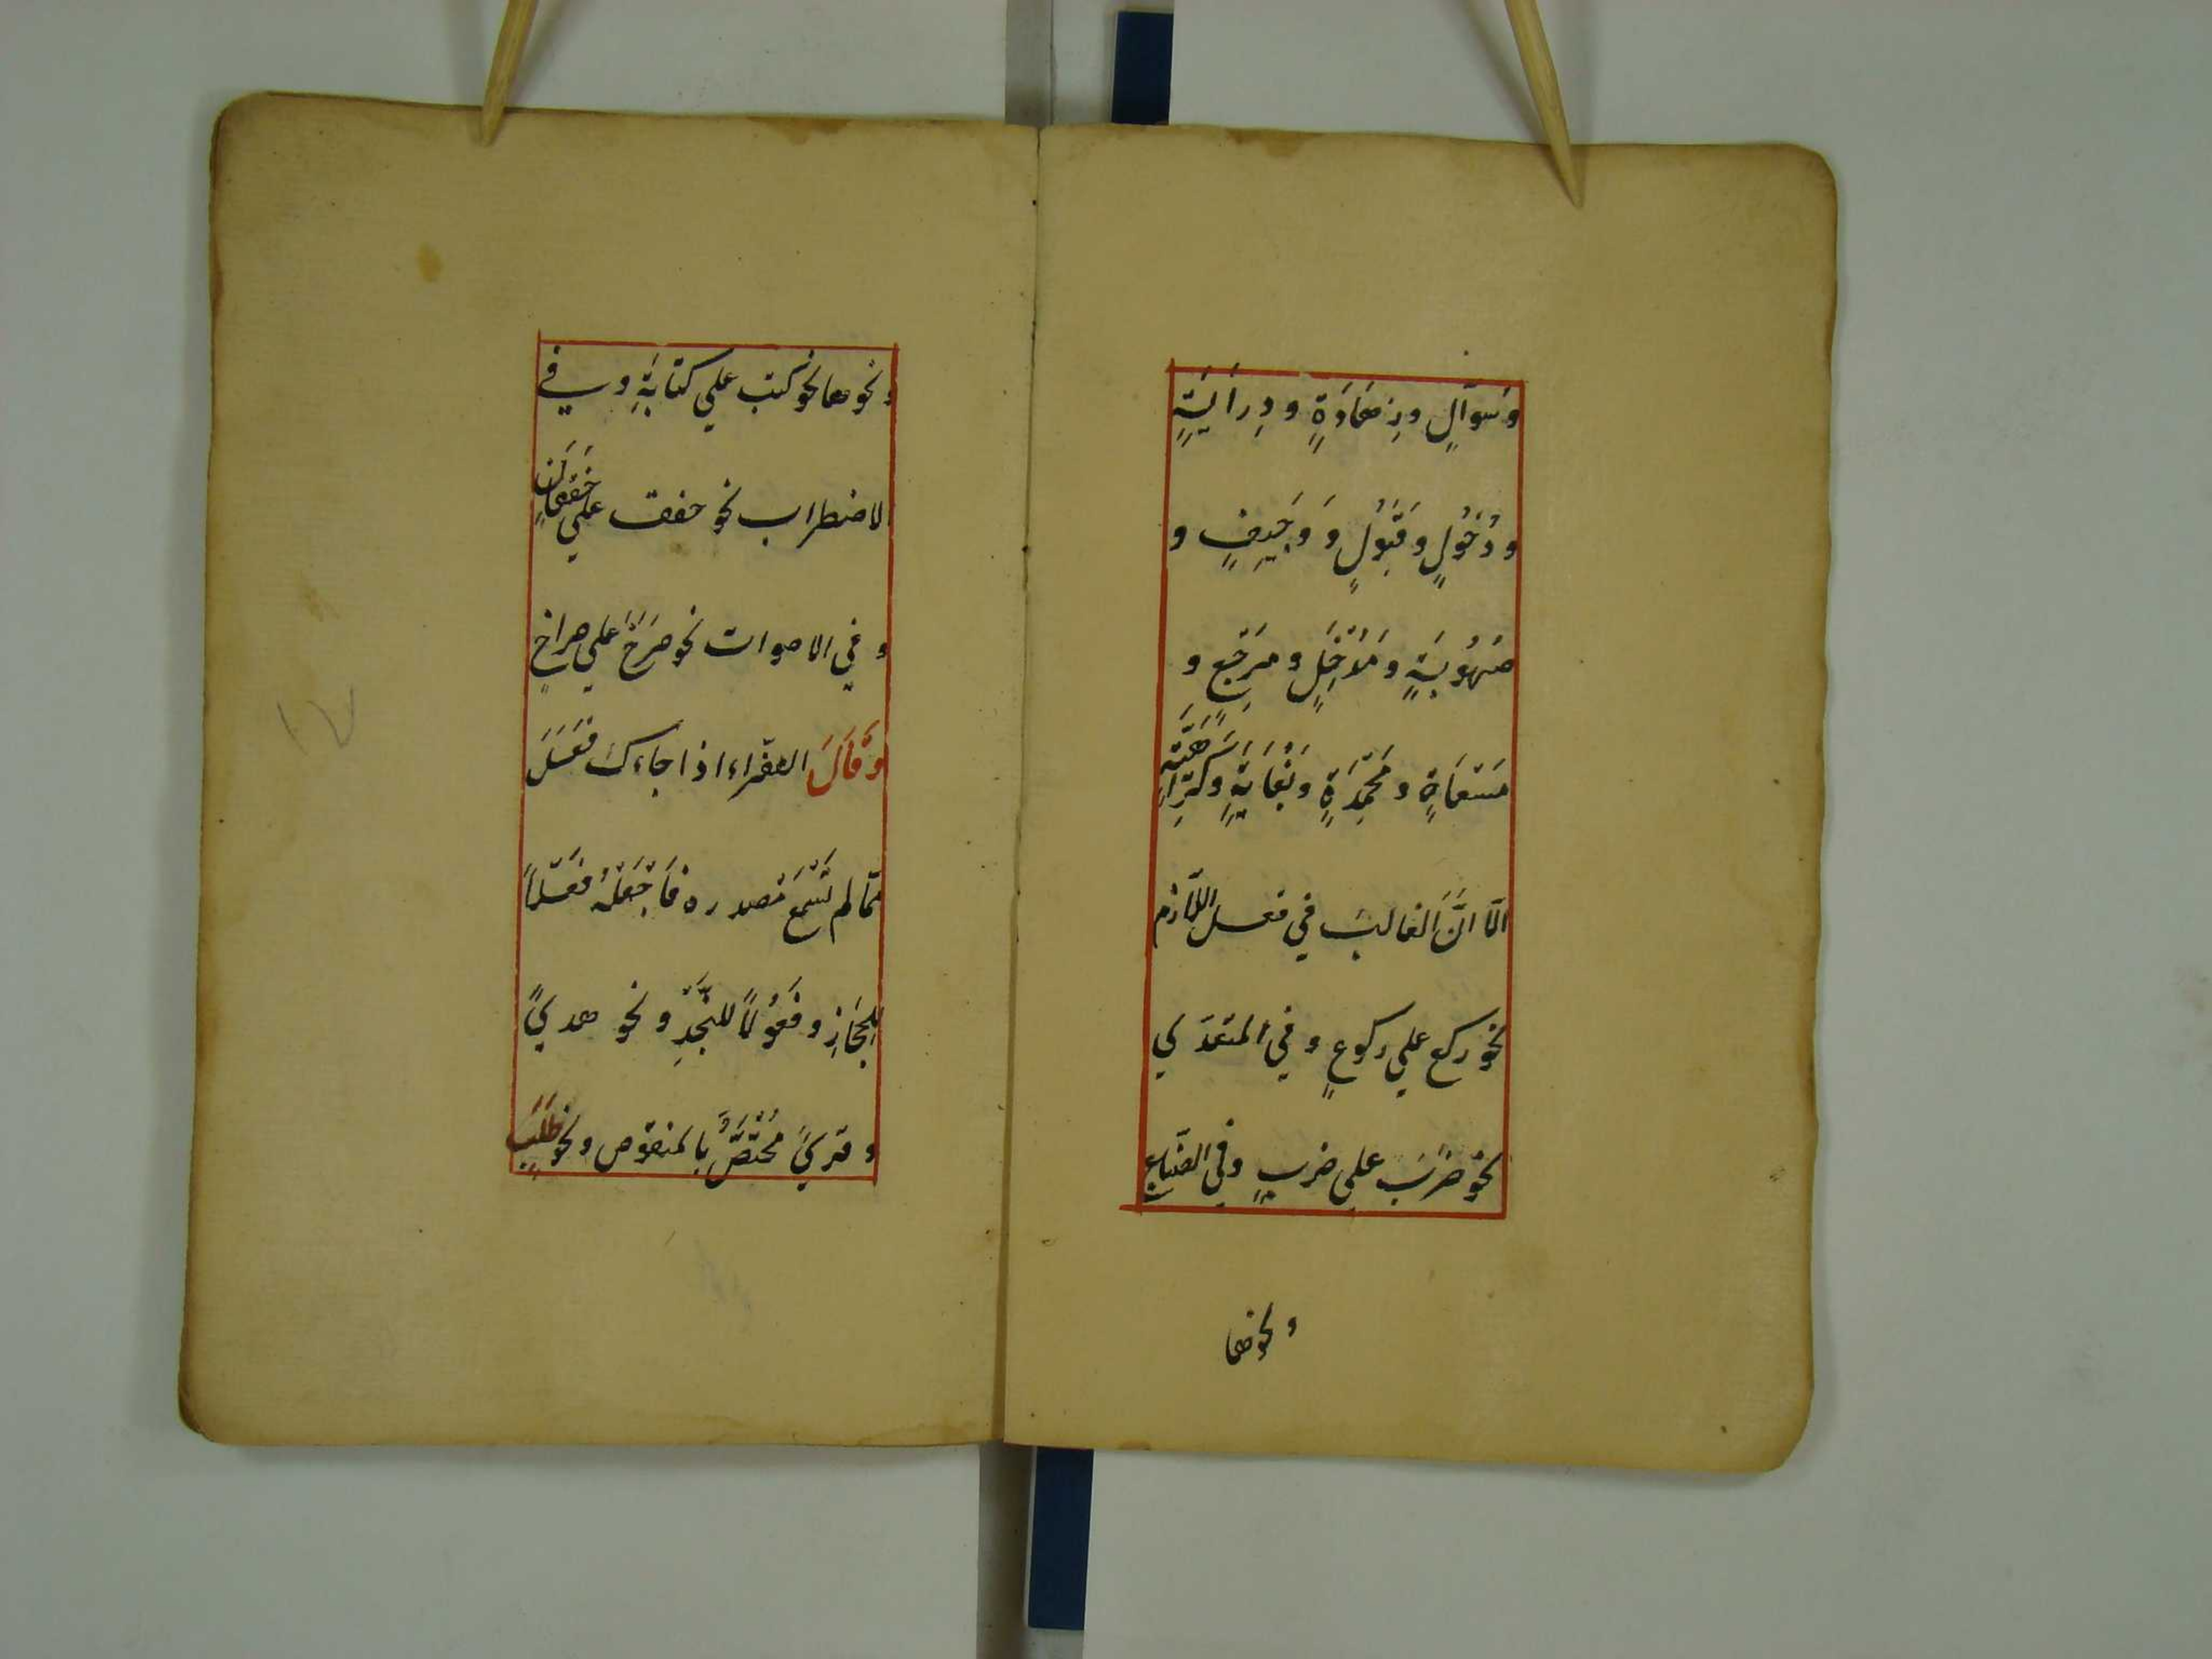 وَسُوآلٍ وزِهَادَةٍ ودِرَايَةٍ
ودُخُولٍ وقَبُولٍ وَوَجِيفٍ و
صُهُوبَةٍ ومَدْخَلٍ ومَرْجِعٍ و
مَسْعَاةٍ ومَحْمِدَةٍ وبُغَايَةٍ وكَرَاهِيَةٍ
الّا انّ الغالبَ في فعل اللّازم
نحو ركع علي ركوعٍ وفي المتعدّي
نحو ضَرَبَ علي ضربٍ وفي الصّنايع
ونحوها
ونحوها نحو كتب علي كتابةٍ وفي
الاضطراب نحو خفق علي خَفَقَانٍ
وفي الاصوات نحو صَرَخَ علي صراخٍ
وَقَالَ الفرّاء اذا جاءك فَعَلَ
ممّا لم تَسْمَعْ مصدره فَاجْعَلْهُ فَعْلاً
للحِجَازِ وفُعُولاً للنَّجْدِ ونحو هدىً
وقرىً مُخْتَصٌّ بالمنقوص ونحو طَلَبٍ